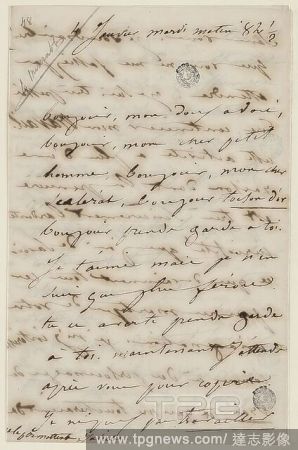 48
4 Janvier mardi matin 8h ½
bonjour, mon doux adoré,
bonjour, mon cher petit
homme, bonjour, mon cher
scélérat, bonjour toison d'or
bonjour, prends garde à toi.
Je t'aime mais je n'en
suis que plus féroce
tu es averti prends garde
à toi. maintenant j'attends
après vous pour copier
TPG
www.tpgnews.com/達志影像